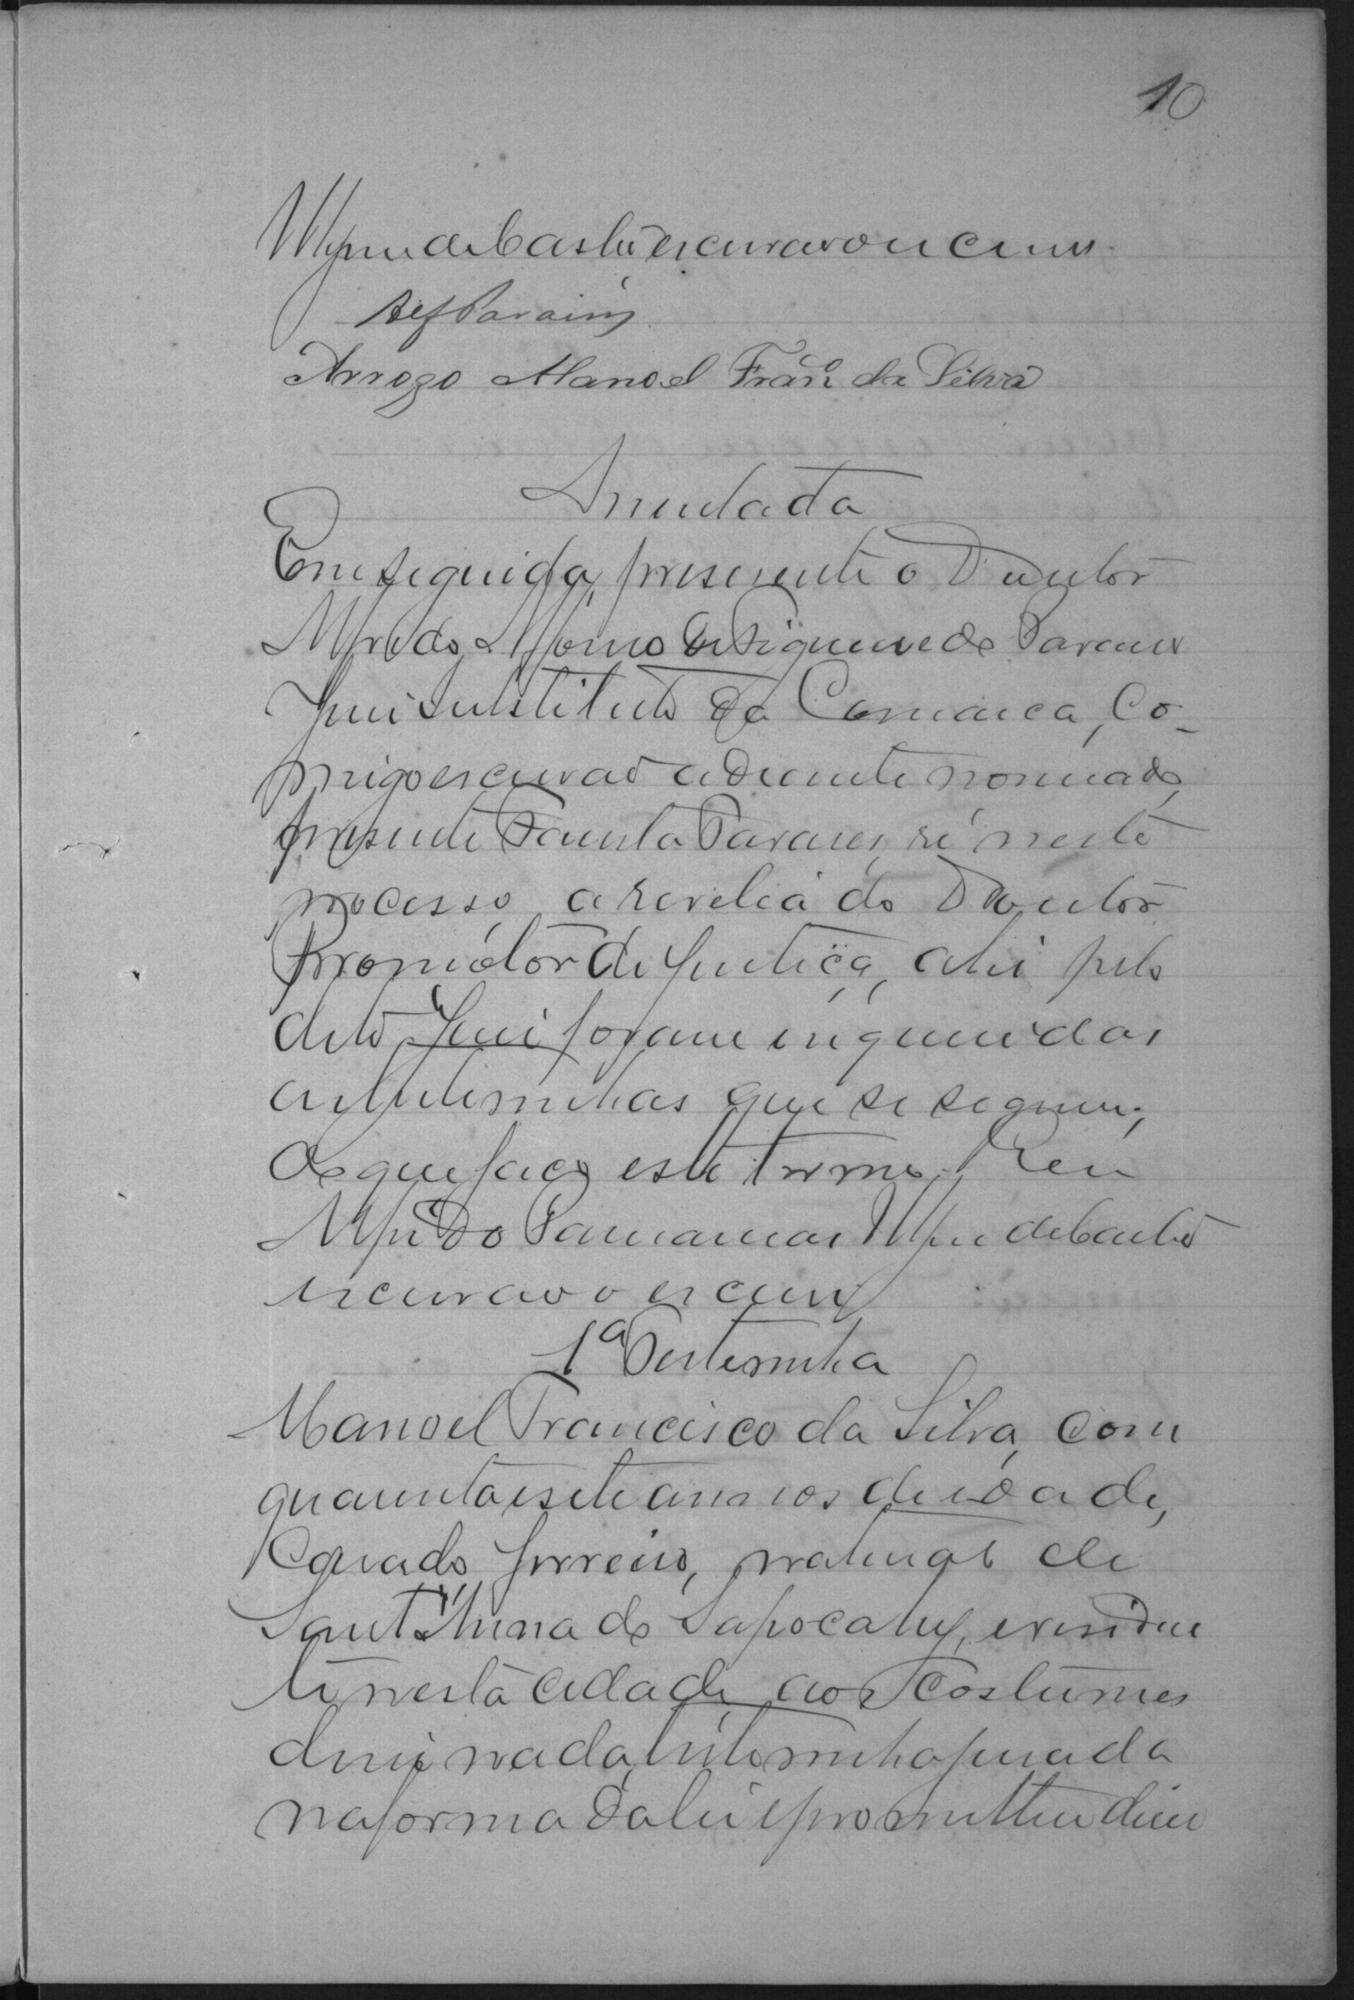 10
de Castro escrivão o escrevi
A rogo Manoel Franco da Silva
Assentada
Em seguida, presente o Doutor
Juiz Substituto da Comarca, co-
migo escrivão adiante nomeado,
presente Fausta Parames, ré neste
processo, a revelia do Doutor
Promotor de Justiça, ahi pelo
dito Juiz foram inqueridas
as testemunhas que se seguem;
do que faço este termo. Eu
Alfredo de Castro
escrivão o escrevi
1ª Testemunha
Manoel Francisco da Silva, com
quarenta e sete annos de idade,
Casado, ferreiro, natural de
Sant'Anna do Sapocahy, e residen
te nesta cidade, aos costumes
disse nada, testemunha jurada
na forma da lei e prometteu dizer